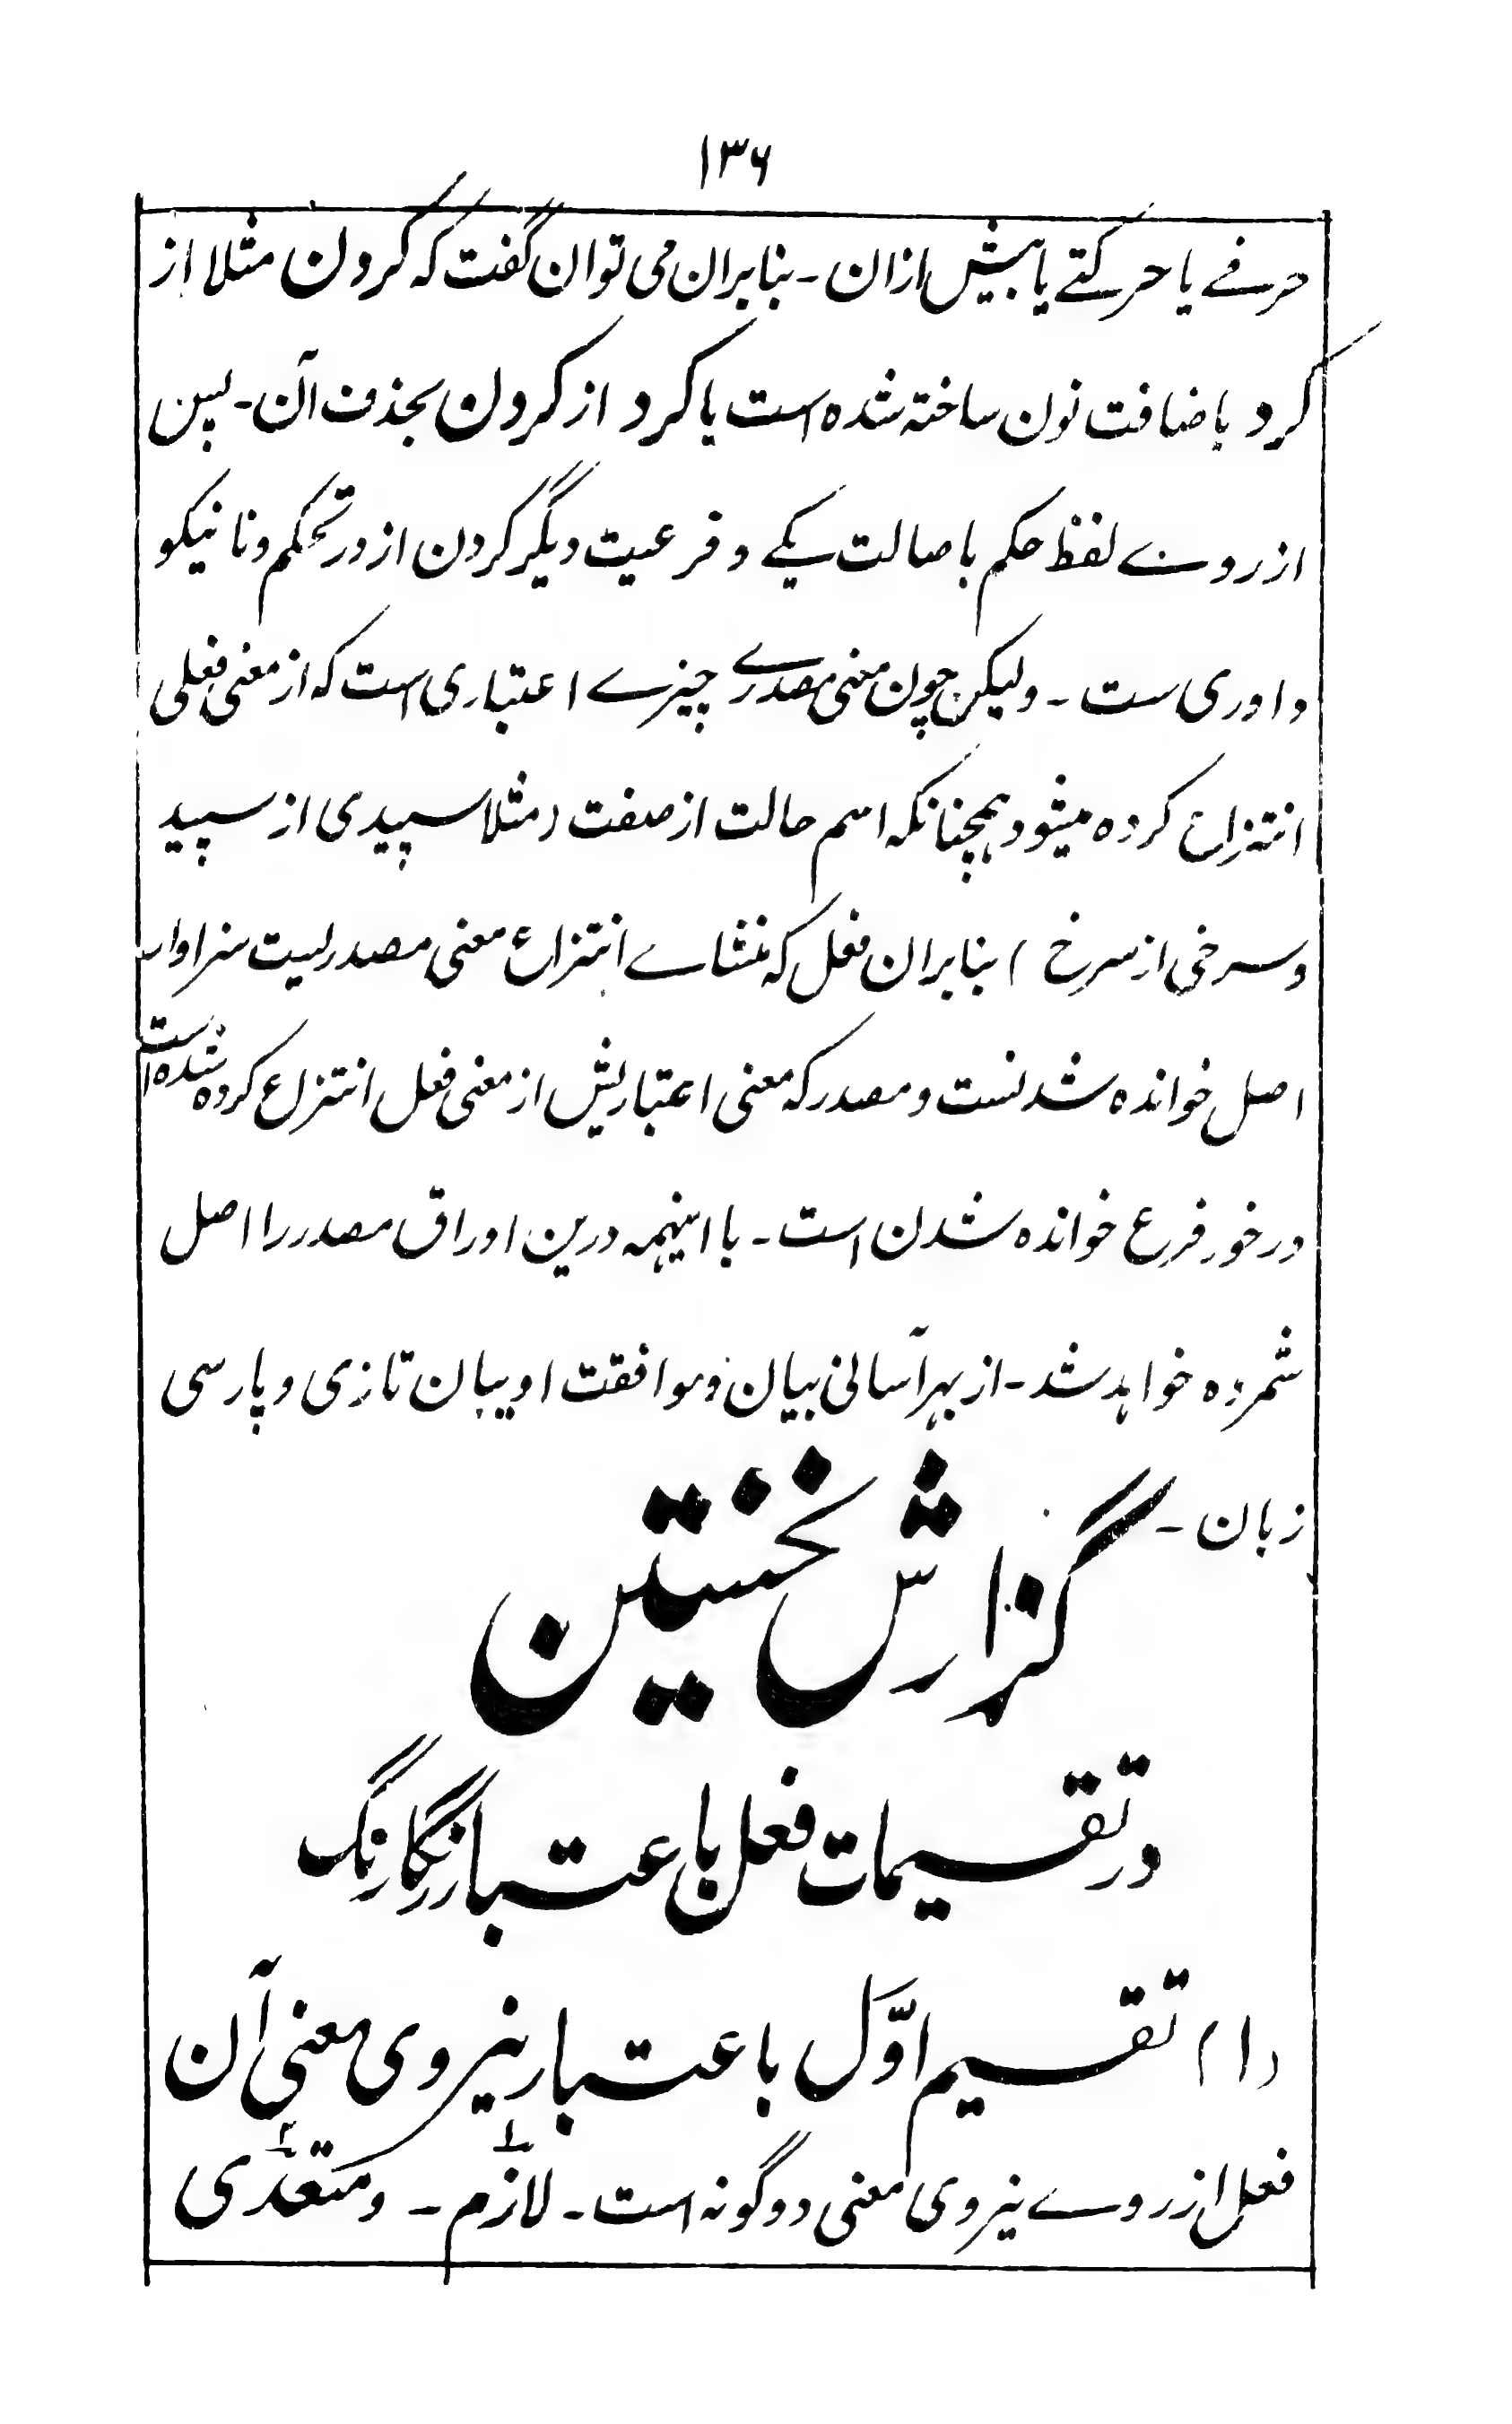 ۱۳۶
حرفے یا حرکتے یا بیش ازان - بنابران می توان گفت که کردن مثلا از
کرد باضافت نون ساخته شده است یا کرد از کردن بحذف آن - پس
از روے لفظ حکم باصالت یکے و فرعیت دیگر کردن از در تحکم و نانیکو
داوری ست - ولیکن چون معنی مصدرے چیزے اعتباری است که از معنی فعلی
انتزاع کرده میشود همچنانکه اسم حالت از صفت (مثلا سپیدی از سپید
وسرخی از سرخ) بنابران فعل که منشاے انتزاع معنی مصدریست سزاوار
اصل خوانده شدنست و مصدر که معنی اعتباریش از معنی فعل انتزاع کرده شده است
درخور فرع خوانده شدن است - با اینهمه درین اوراق مصدر را اصل
شمرده خواهد شد - از بهر آسانی بیان و موافقت ادیبان تازی و پارسی
زبان -
گزارش نخستین
در تقسیمات فعل باعتبار رنگارنگ
(۱) تقسیم اوّل باعتبار نیروی معنی آن
فعل از روے نیروی معنی دوگونه است - لازم - و متعدّی